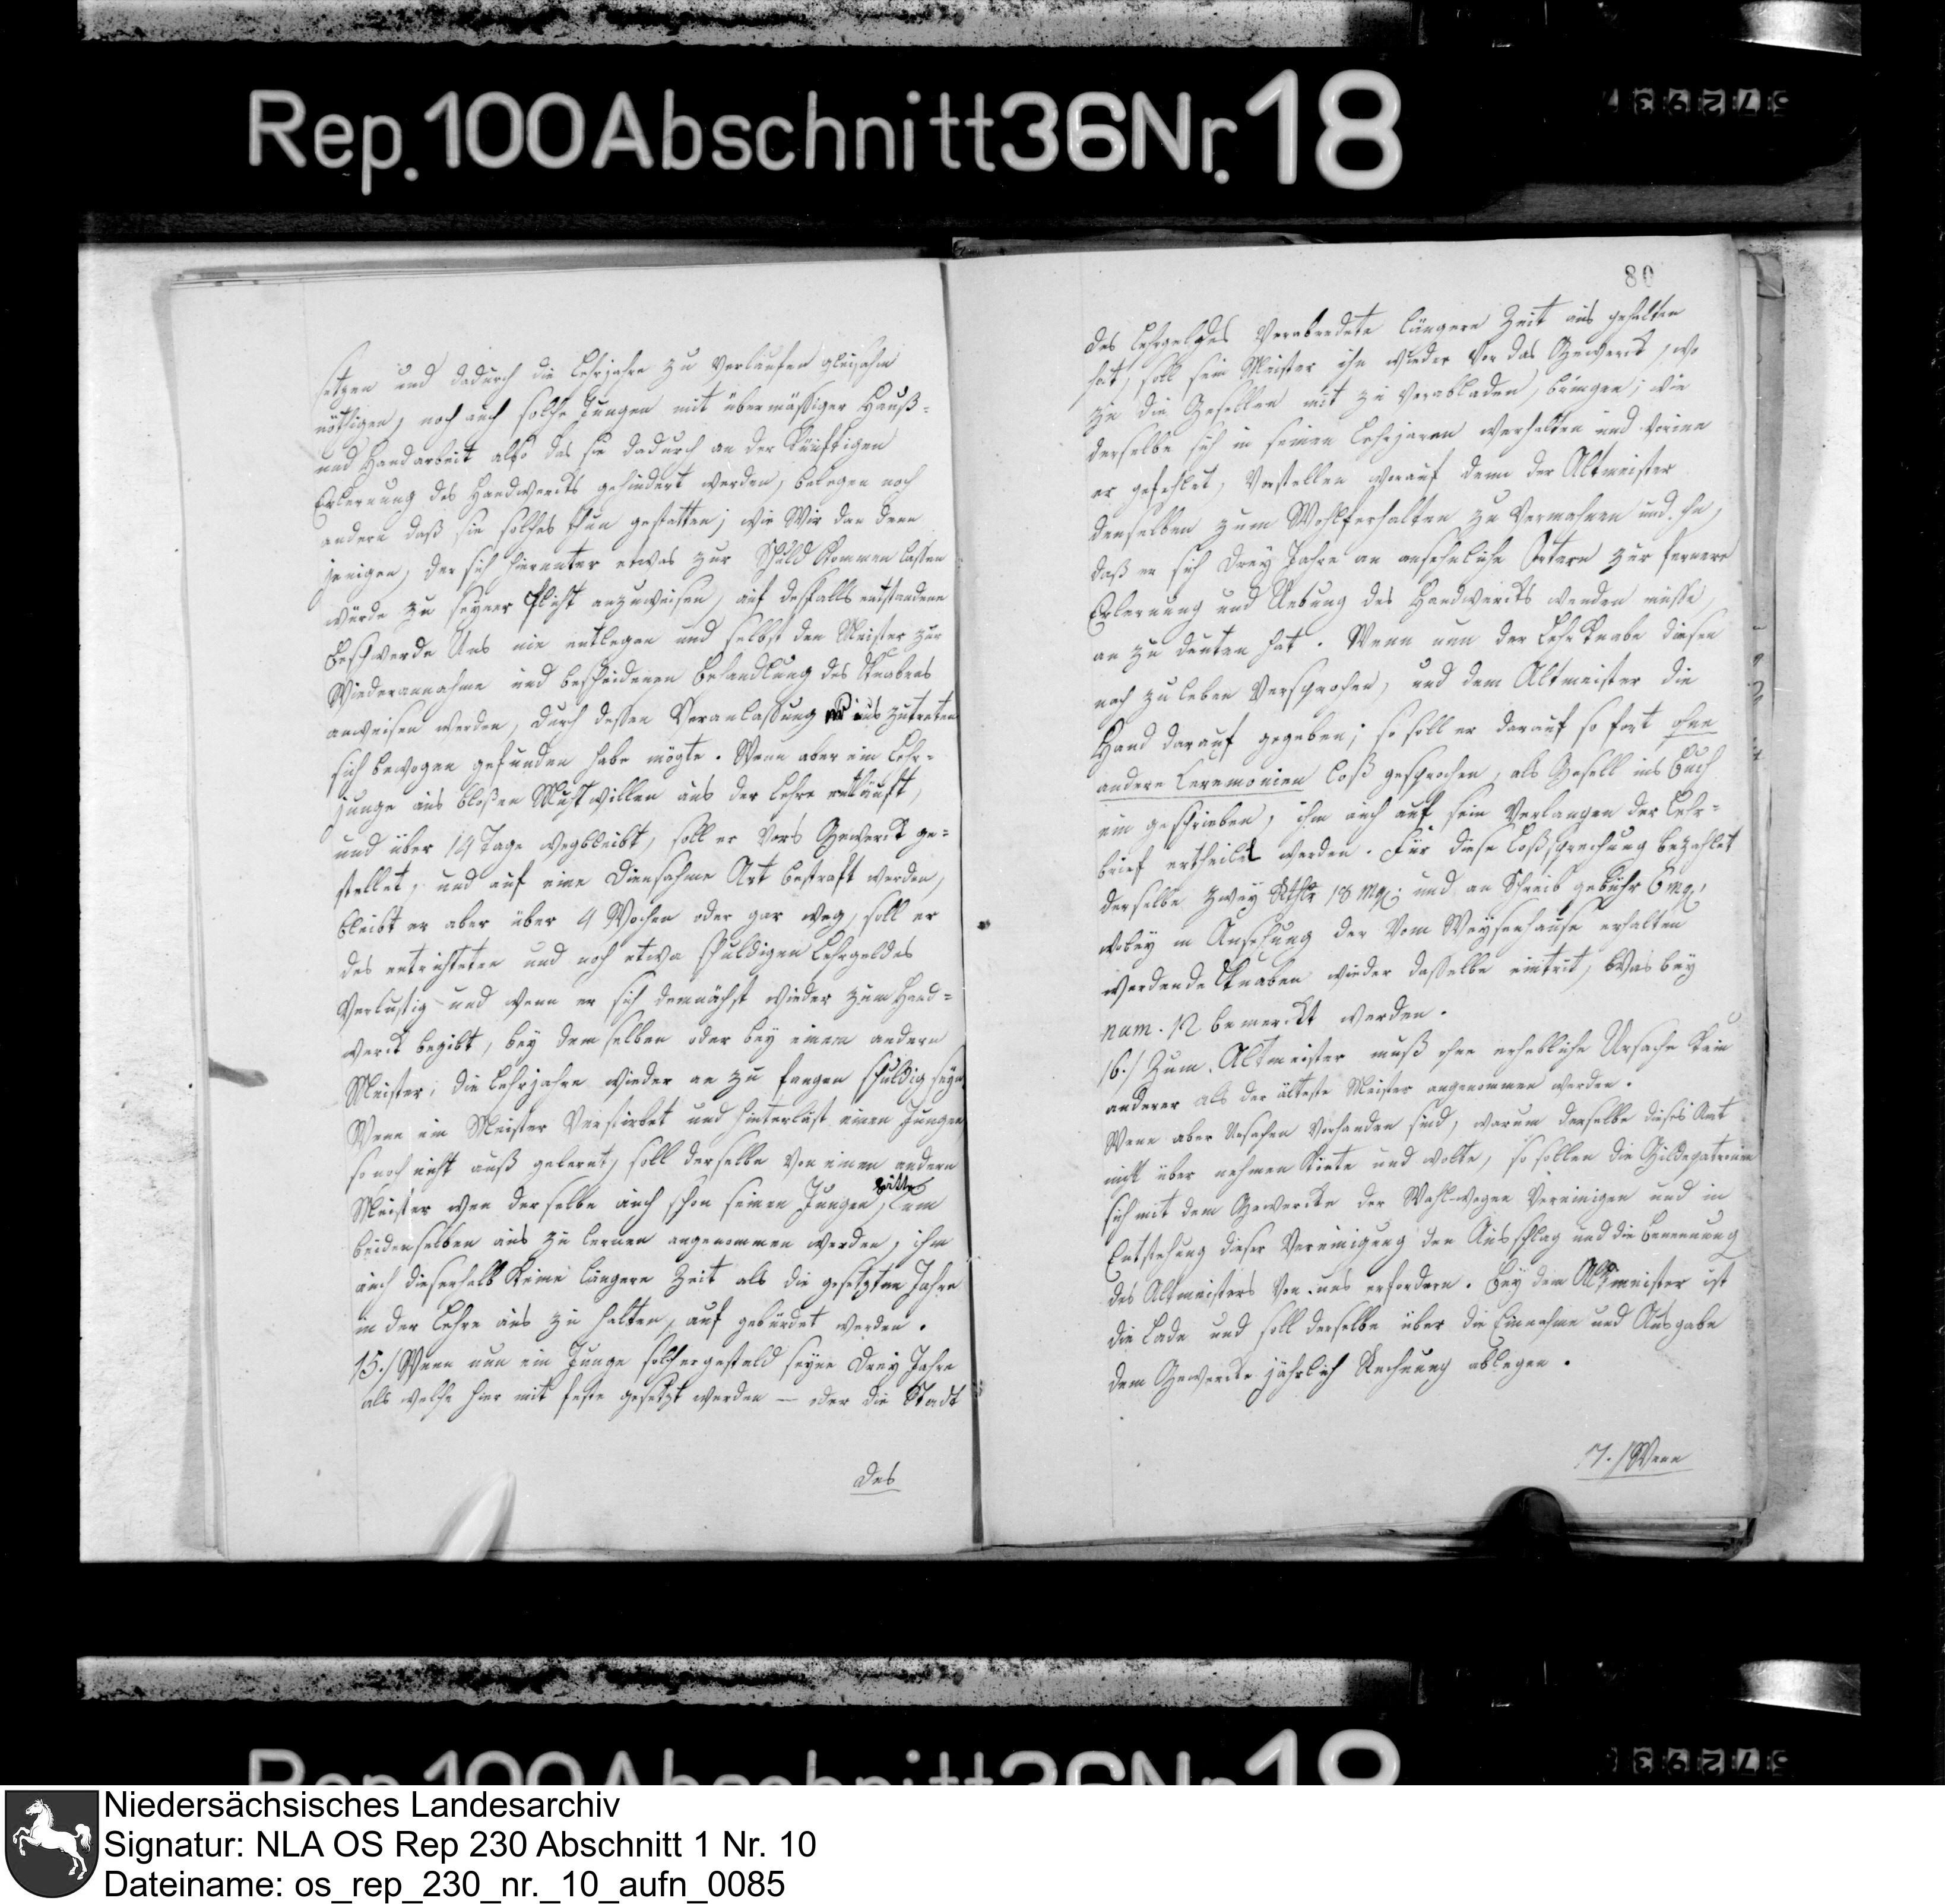 Rep. 100 Abschnitt 36 Nr. 18
setzen und dadurch die Lehrjahre zu verlaufen gleichsam
nöthigen, noch auch solche Jungen mit übermässiger Hauß-
und Handarbeit also das sie dadurch an der künftigen
Erlernung des Handwercks gehindert werden, belegen noch
andern daß sie solches thun gestatten; wie Wir dan denn
jenigen, der sich hierunter etwas zur Schuld kommen lassen
würde zu seyner Pflicht anzuweisen, auf desfalls entstandene
Beschwerde Uns nie entlegen und selbst den Meister zur
Wiederannahme und bescheidenen Behandlung des Knabens
anweisen werden, durch dessen Veranlassung aus zutreten
sich bewogen gefunden habe mögte. Wenn aber ein Lehr-
junge aus bloßen Muthwillen aus der Lehre entläuft,
und über 14 Tage wegbleibt, soll er vors Gewerck ge-
stellet, und auf eine diensahme Art bestraft werden,
bleibt er aber über 4 Wochen oder gar weg, soll er
des entrichteten und noch etwa schuldigen Lehrgeldes
verlustig und wenn er sich demnächst wieder zum Hand-
werck begibt, bey dem selben oder bey einem andern
Meister, die Lehrjahre wieder an zu fangen schuldig seyn
Wenn ein Meister verstirbet und hinterläst einen Jungen
so noch nicht auß gelernt, soll derselbe von einem andern
Meister wen derselbe auch schon seinen Jungen hätte, um
beidenselben aus zu lernen angenommen werden, ihm
auch dieserhalb keine längere Zeit als die gesetzten Jahre
in der Lehre aus zu halten, auf gebürdet werden.
15./ Wenn nun ein Junge solchergestald seyne drey Jahre
als welche hier mit feste gesetzt werden — oder die Stadt
des
80
des Lehrgeldes verabredete längere Zeit aus gehalten
hat, soll sein Meister ihn wieder vor das Gewerck, wo
zu die Gesellen mit zu verabladen, bringen; wie
derselbe sich in seinen Lehrjaren verhalten und worinn
er gefehlet, vorstellen worauf denn der Altmeister
denselben zum Wohlferhalten zu vermahnen und ihn,
daß er sich drey Jahre an ansehnliche Örtern zur fernere
Erlernung und Uebung des Handwercks wenden müsse,
an zu deuten hat. Wenn nun der Lehr Knabe diesen
nach zu leben versprochen, und dem Altmeister die
Hand darauf gegeben; so soll er darauf so fort ohne
andere Ceremonien loß gesprochen, als Gesell ins Buch
ein geschrieben, ihm auch auf sein Verlangen der Lehr-
brief ertheilet werden. Für diese Loßsprechung bezahlet
derselbe zwey Rthlr 18 mg; und an Schreib gebühr 6 mg,
wobey in Ansehung der vom Weysenhause erhalten
werdende Knaben wieder dasselbe eintrit, was bey
num. 12 bemerckt werden.
16./ Zum Altmeister muß ohne erhebliche Ursache kein
anderer als der älteste Meister angenommen werden.
Wenn aber Ursachen vorhanden sind, warum derselbe dieses Amt
nicht über nehmen könte und wolte, so sollen die Gildepatronen
sich mit dem Gewercke der Wahl wegen vereinigen und in
Entstehung dieser Vereinigung den Ausschlag und die Benennung
des Altmeisters von uns erfordern. Bey dem Altmeister ist
die Lade und soll derselbe über die Einnahme und Ausgabe
dem Gewercke jährlich Rechnung ablegen.
17./ Wenn
Niedersächsisches Landesarchiv
Signatur: NLA OS Rep 230 Abschnitt 1 Nr. 10
Dateiname: os_rep_230_nr._10_aufn_0085